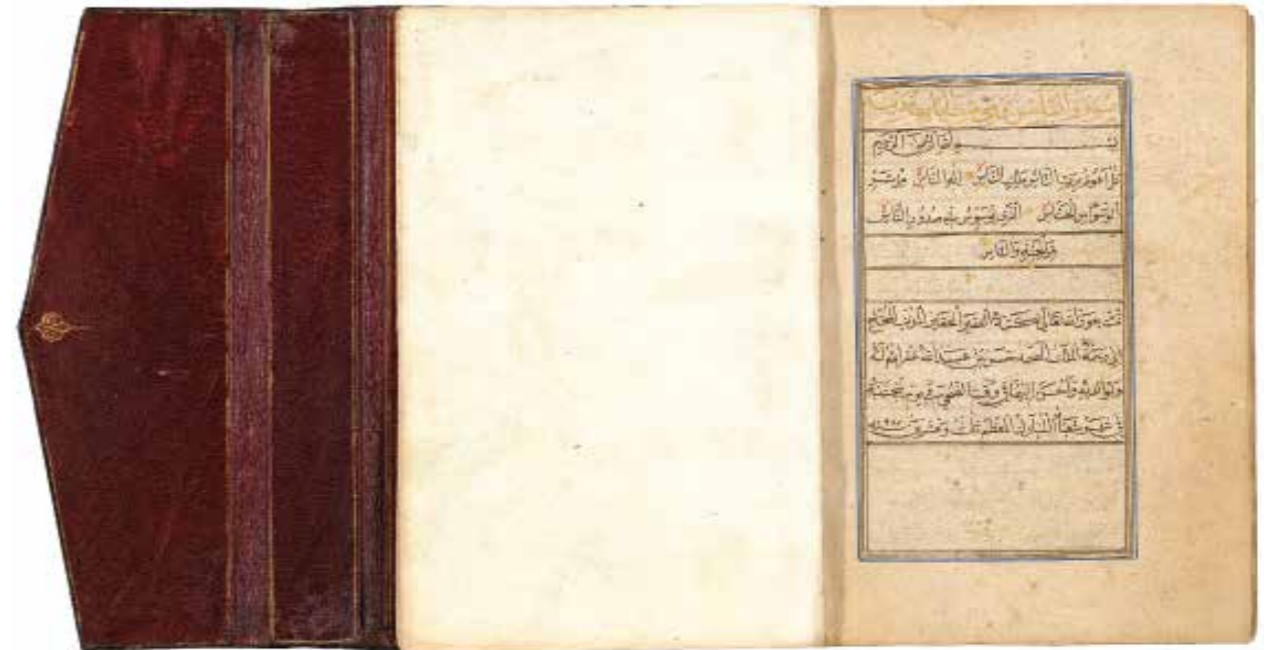 سورة الناس
بسم الله الرحمن الرحيم
قُل اَعُوذُ بِرَبِّ النَّاسِ مَلِكِ النَّاسِ اِلٰهِ النَّاسِ مِنْ شَرِّ
الْوَسْوَاسِ الْخَنَّاسِ الَّذِي يُوَسْوِسُ فِي صُدُورِ النَّاسِ
مِنَ الْجِنَّةِ وَالنَّاسِ
تمت بعون الله تعالى كتبه الفقير الحقير المذنب المحتاج
الى رحمة الملك حسن بن عبد الله غفر الله له
ولوالديه واحسن وقت الضحى في يوم
في شهر شعبان المبارك المعظم ثلث وعشرين